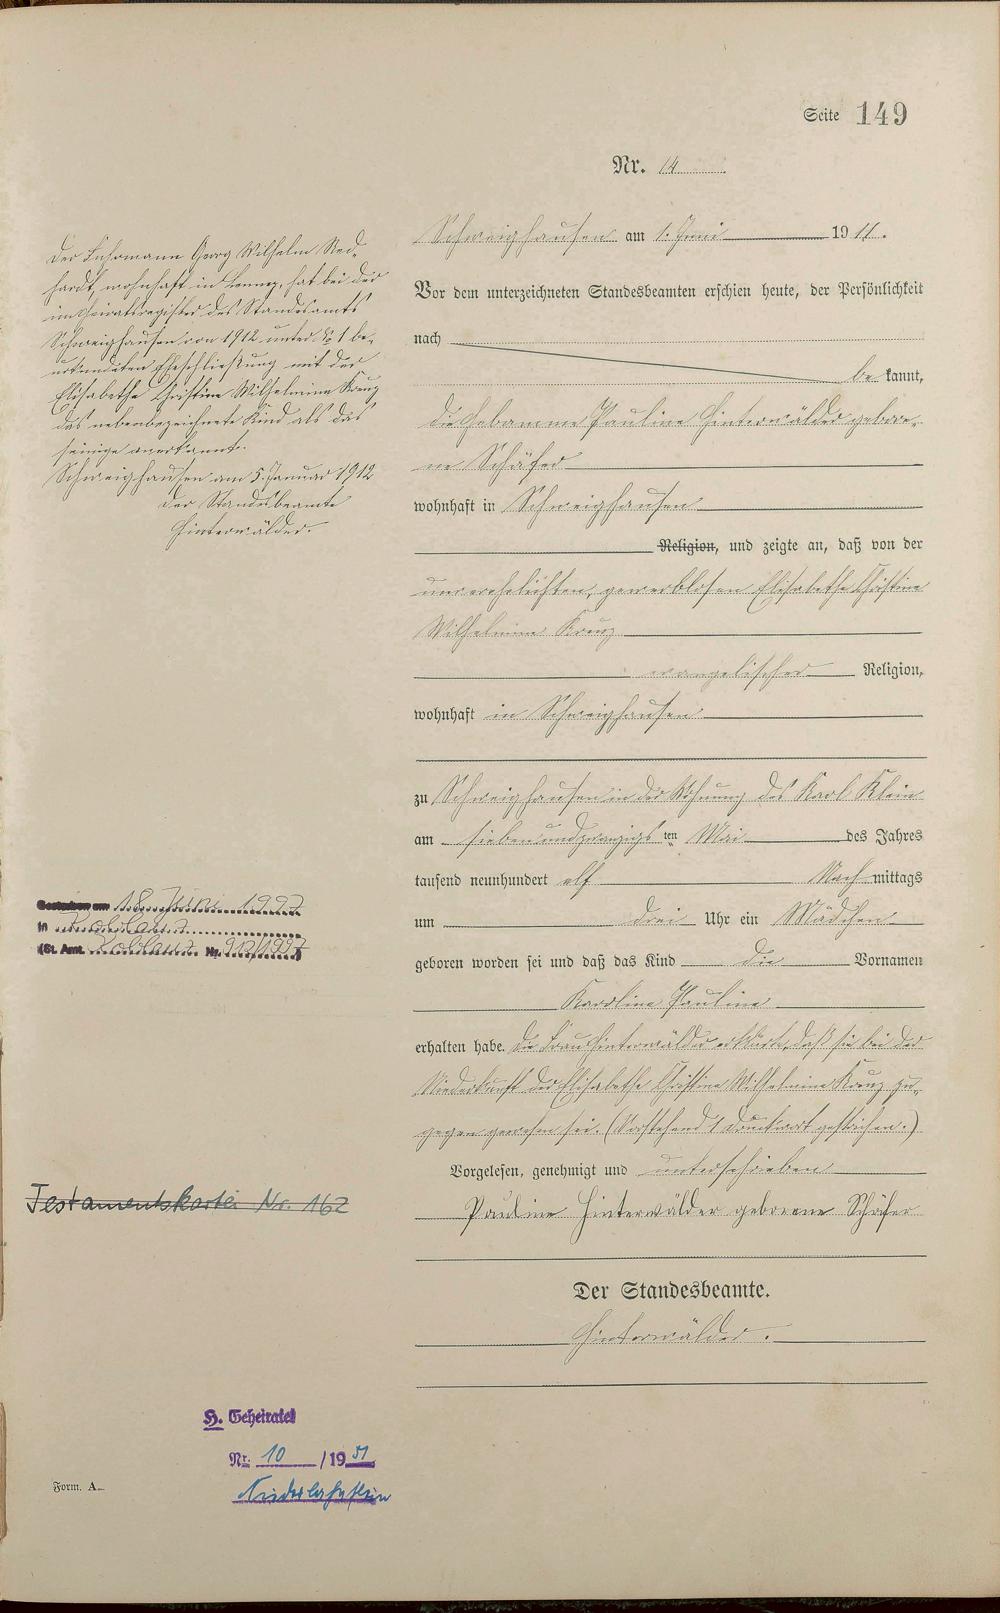 Seite 149
Nr. 14
Schweighausen am 1. Juni 1911.
Vor dem unterzeichneten Standesbeamten erschien heute, der Persönlichkeit
nach
be kannt,
die Hebamme Pauline Hinterwälder gebore-
ne Schäfer
wohnhaft in Schweighausen
Religion, und zeigte an, daß von der
unverehelichten, gewerblosen Elisabethe Christine
Wilhelmine Kreuz
evangelischer Religion,
wohnhaft in Schweighausen
zu Schweighausen in der Wohnung des Karl Klein
am siebenundzwanzigs ten Mai des Jahres
tausend neunhundert elf Nach mittags
um drei Uhr ein Mädchen
geboren worden sei und daß das Kind die Vornamen
Karoline Pauline
erhalten habe. Die Frau Hinterwälder erklärte, daß sie bei der
Niederkunft der Elisabethe Christine Wilhelmine Kreuz zu-
gegen gewesen sei. (Vorstehend 1 Druckwort gestrichen.)
Vorgelesen, genehmigt und unterschrieben
Pauline Hinterwälder geborene Schäfer
Der Standesbeamte.
Hinterwälder.
Der Fuhrmann Georg Wilhelm
wohnhaft in hat bei der
im Heiratsregister des Standesamts
Schweighausen von 1912 unter No 1 be-
urkundeten Eheschließung mit der
Elisabethe Christine Wilhelmine Kreuz
das nebenbezeichnete Kind als das
seinige anerkannt.
Schweighausen am 5. Januar 1912
Der Standesbeamte
Hinterwälder.
Gestorben am 18. Juni 1997
in Koblenz
(St. Amt. Koblenz Nr. 912/1997)
Testamentskartei Nr. 162
H. Geheiratet
Nr. 10 /19 51
Niederlahnstein
Form. A.